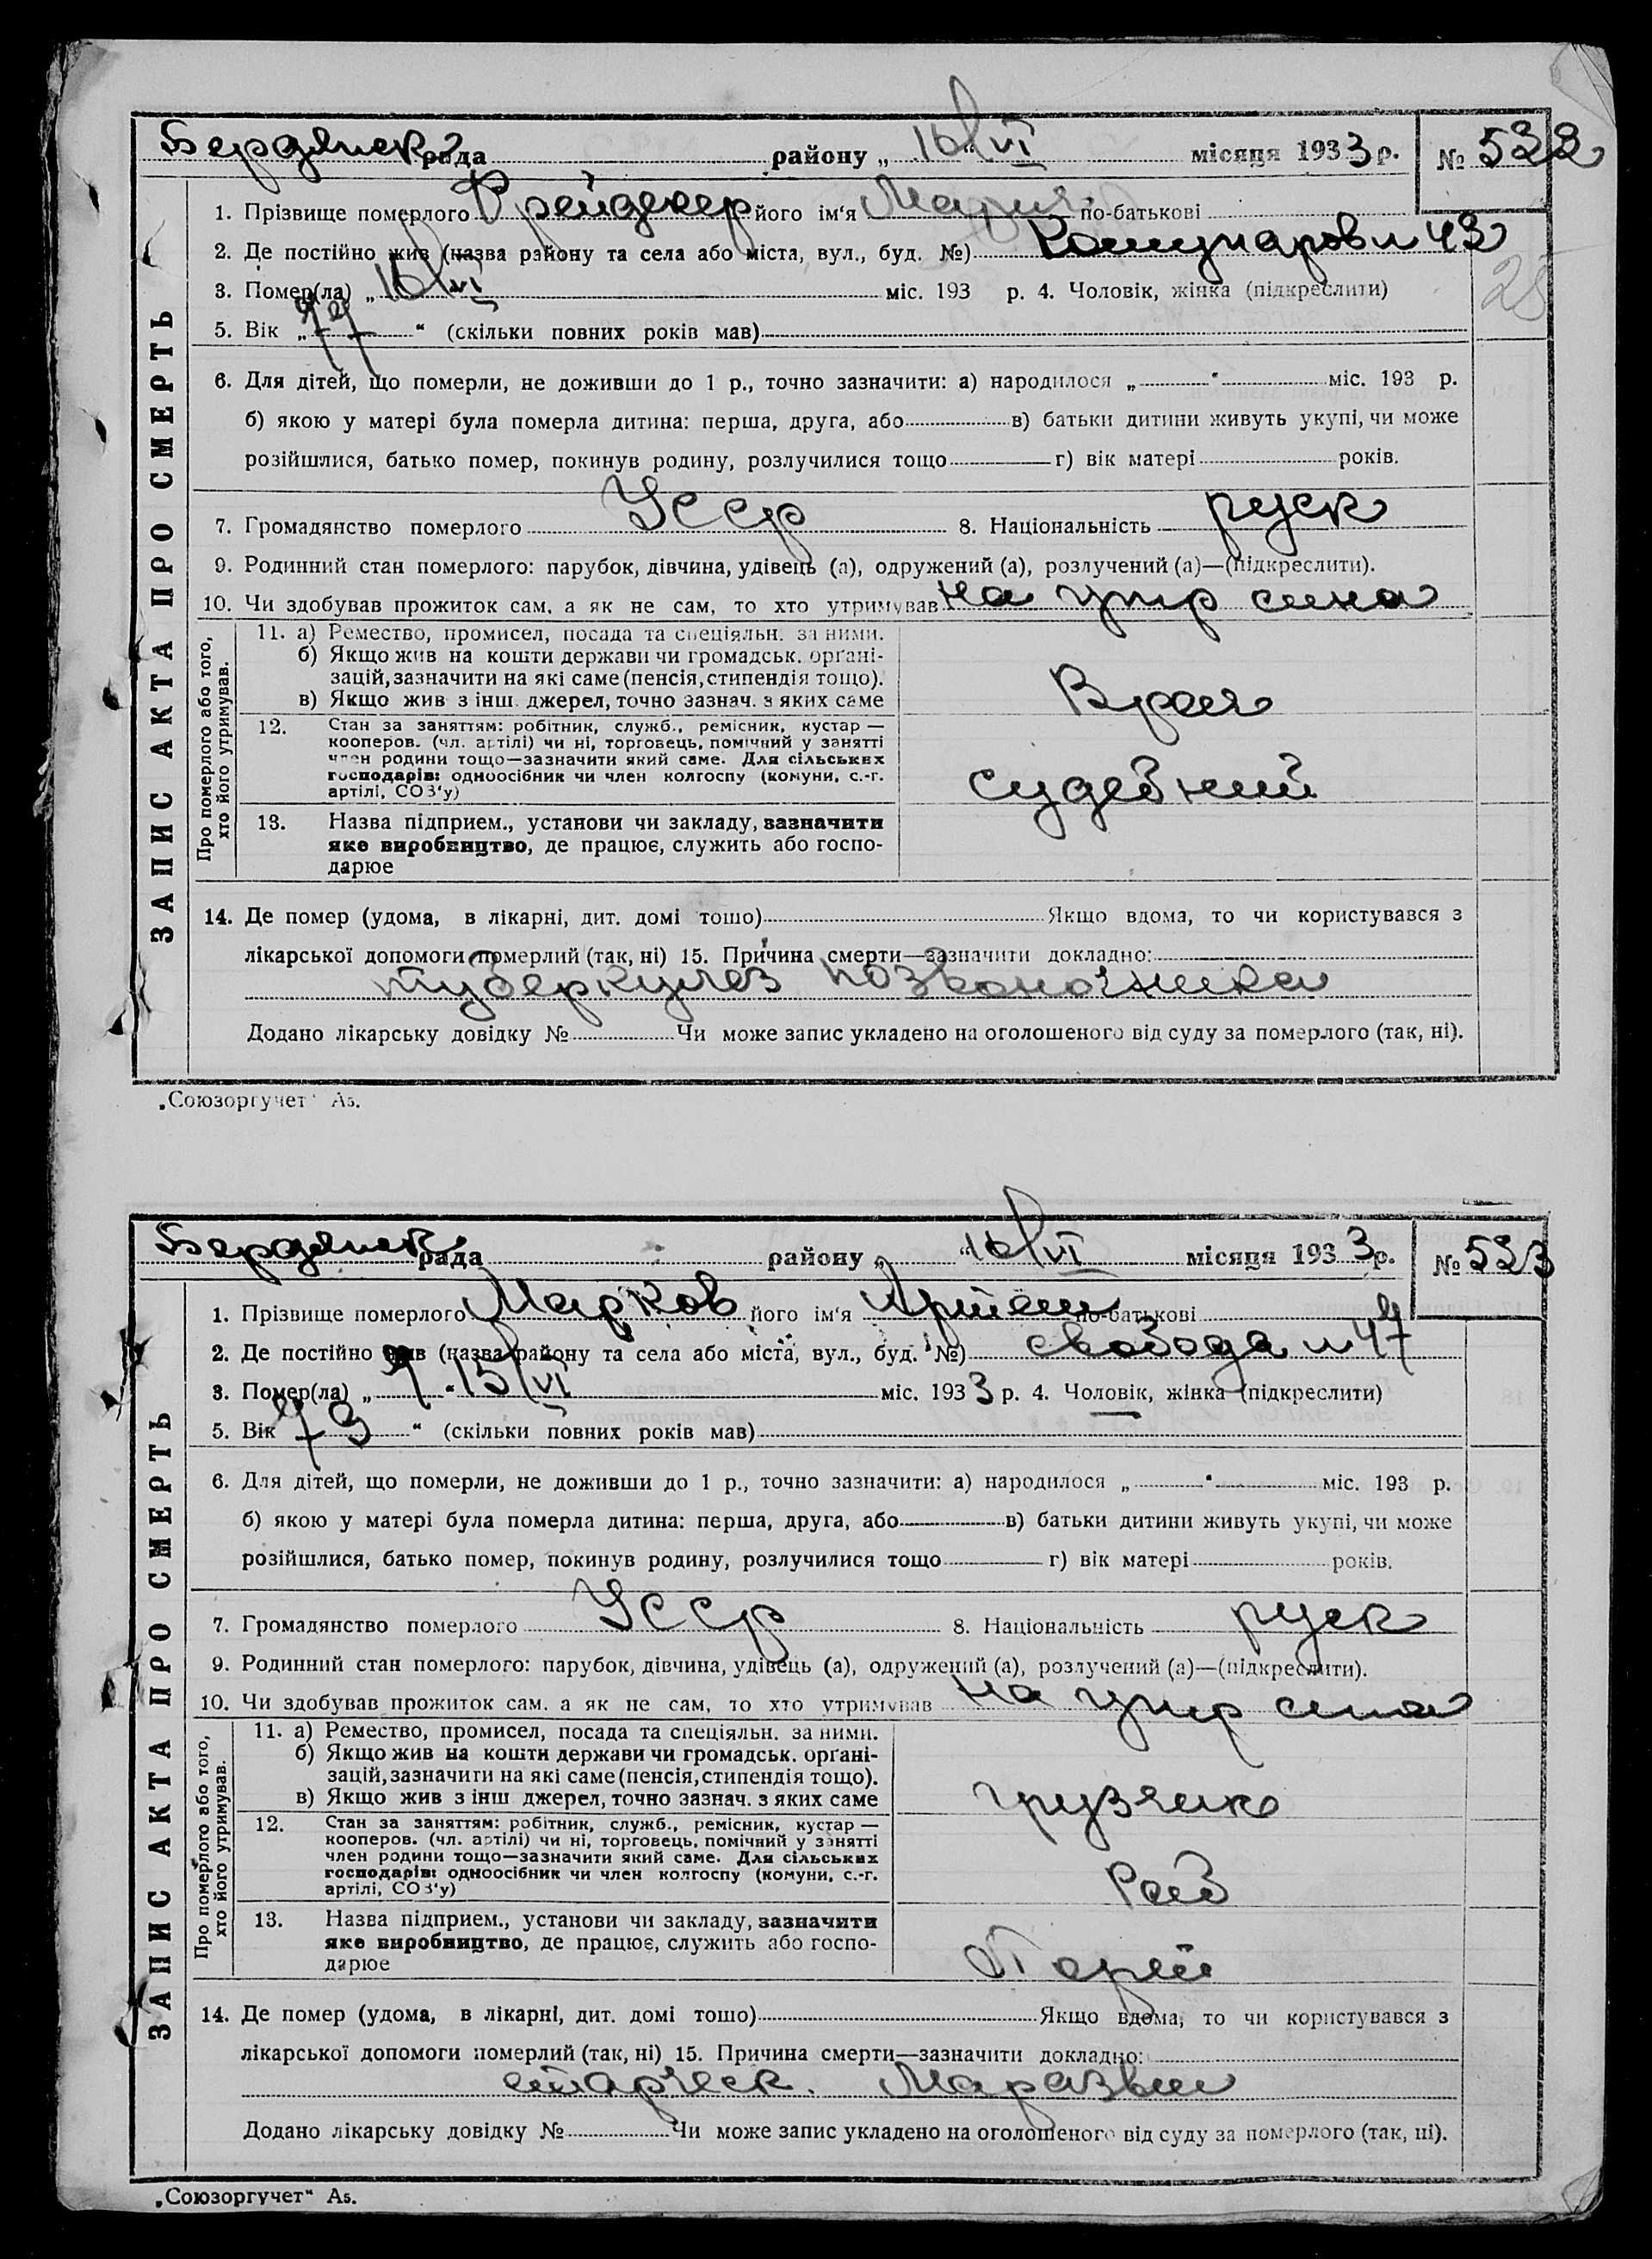 Бердянск рада району „ 16/VI місяця 1933 р. № 522
1. Прізвище померлого Фрейдекер його ім'я Мария по-батькові
2. Де постійно жив (назва району та села або міста, вул., буд. №) Комунаров 43
25
3. Помер(ла) „ 16/VI міс. 193 р. 4. Чоловік, жінка (підкреслити)
5. Вік „ 77 “ (скільки повних років мав)
6. Для дітей, що померли, не доживши до 1 р., точно зазначити: а) народилося „ “ міс. 193 р.
б) якою у матері була померла дитина: перша, друга, або в) батьки дитини живуть укупі, чи може
розійшлися, батько помер, покинув родину, розлучилися тощо г) вік матері років.
7. Громадянство померлого Усср 8. Національність руск
9. Родинний стан померлого: парубок, дівчина, удівець (а), одружений (а), розлучений (а)—(підкреслити).
10. Чи здобував прожиток сам, а як не сам, то хто утримував на утр сина
ЗАПИС АКТА ПРО СМЕРТЬ
Про померлого або того, хто його утримував.
11. а) Ремество, промисел, посада та спеціяльн. за ними.
б) Якщо жив на кошти держави чи громадськ. орґані-
зацій, зазначити на які саме (пенсія, стипендія тощо).
в) Якщо жив з інш. джерел, точно зазнач. з яких саме
Врач
12. Стан за заняттям: робітник, служб., ремісник, кустар —
кооперов. (чл. артілі) чи ні, торговець, помічний у занятті
член родини тощо—зазначити який саме. Для сільських
господарів: одноосібник чи член колгоспу (комуни, с.-г.
артілі, СОЗ'у)
судебний
13. Назва підприєм., установи чи закладу, зазначити
яке виробництво, де працює, служить або госпо-
дарює
14. Де помер (удома, в лікарні, дит. домі тощо) Якщо вдома, то чи користувався з
лікарської допомоги померлий (так, ні) 15. Причина смерти—зазначити докладно:
туберкулез позвоночника
Додано лікарську довідку № Чи може запис укладено на оголошеного від суду за померлого (так, ні).
„Союзоргучет“ А5.
Бердянск рада району „ “ 16/VI місяця 1933 р. № 523
1. Прізвище померлого Марков його ім'я Артем по-батькові
2. Де постійно жив (назва району та села або міста, вул., буд. №) свобода 47
3. Помер(ла) „ “ 15/VI міс. 1933 р. 4. Чоловік, жінка (підкреслити)
5. Вік 73 “ (скільки повних років мав)
6. Для дітей, що померли, не доживши до 1 р., точно зазначити: а) народилося „ “ міс. 193 р.
б) якою у матері була померла дитина: перша, друга, або в) батьки дитини живуть укупі, чи може
розійшлися, батько помер, покинув родину, розлучилися тощо г) вік матері років.
7. Громадянство померлого Усср 8. Національність руск
9. Родинний стан померлого: парубок, дівчина, удівець (а), одружений (а), розлучений (а)—(підкреслити).
10. Чи здобував прожиток сам, а як не сам, то хто утримував на утр сина
ЗАПИС АКТА ПРО СМЕРТЬ
Про померлого або того, хто його утримував.
11. а) Ремество, промисел, посада та спеціяльн. за ними.
б) Якщо жив на кошти держави чи громадськ. орґані-
зацій, зазначити на які саме (пенсія, стипендія тощо).
в) Якщо жив з інш. джерел, точно зазнач. з яких саме
грузчик
12. Стан за заняттям: робітник, служб., ремісник, кустар —
кооперов. (чл. артілі) чи ні, торговець, помічний у занятті
член родини тощо—зазначити який саме. Для сільських
господарів: одноосібник чи член колгоспу (комуни, с.-г.
артілі, СОЗ'у)
Раб
13. Назва підприєм., установи чи закладу, зазначити
яке виробництво, де працює, служить або госпо-
дарює
14. Де помер (удома, в лікарні, дит. домі тощо) Якщо вдома, то чи користувався з
лікарської допомоги померлий (так, ні) 15. Причина смерти—зазначити докладно:
старческ. Маразм
Додано лікарську довідку № Чи може запис укладено на оголошеного від суду за померлого (так, ні).
„Союзоргучет“ А5.